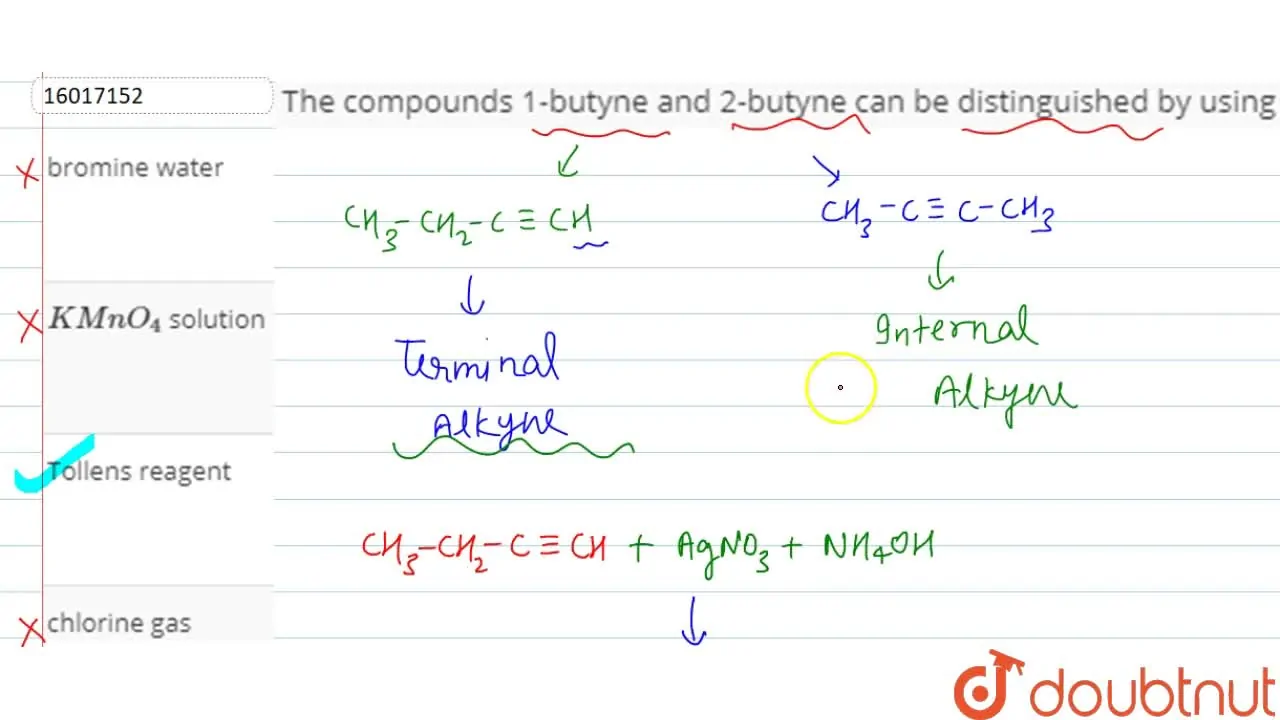 16017152
The compounds 1-butyne and 2-butyne can be distinguished by using
bromine water
KMnO₄ solution
Tollens reagent
chlorine gas
CH₃-CH₂-C≡CH
CH₃-C≡C-CH₃
Terminal
Alkyne
Internal
Alkyne
CH₃-CH₂-C≡CH + AgNO₃ + NH₄OH
doubtnut